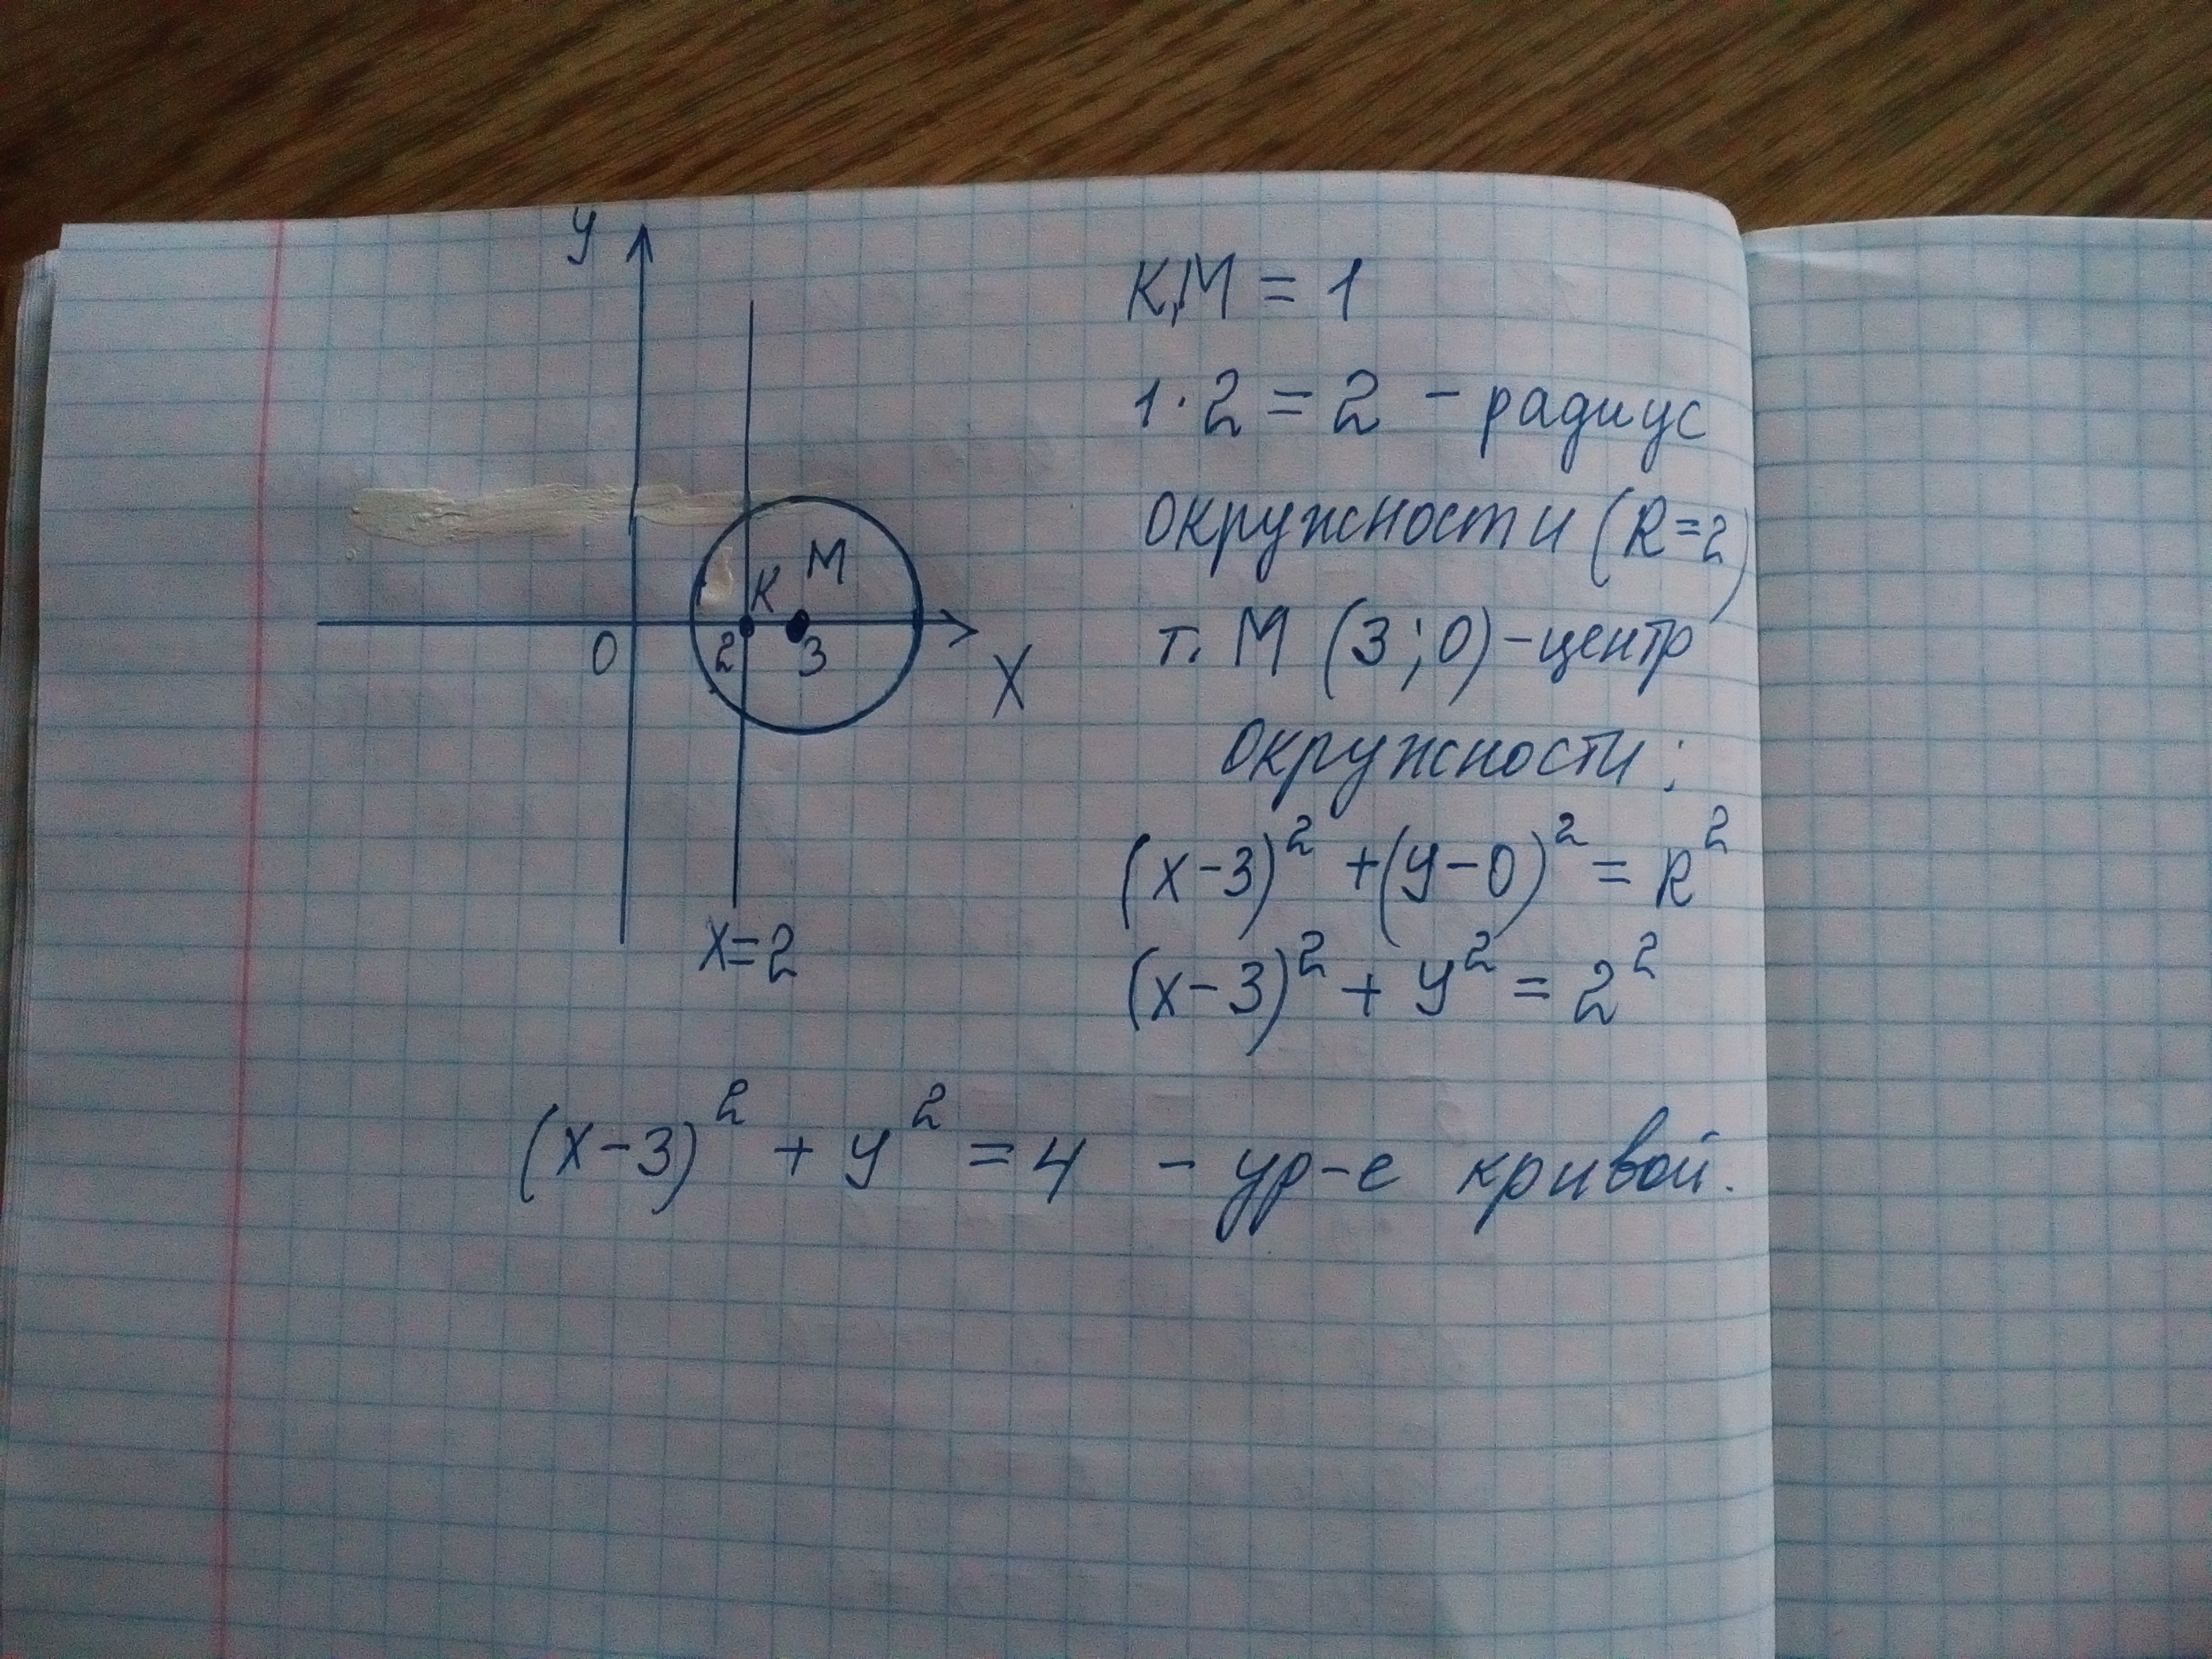 y
К М
0 2 3
X
x=2
КМ = 1
1·2 = 2 - радиус
окружности (R=2)
т. М (3;0)-центр
окружности;
(x-3)² + (y-0)² = R²
(x-3)² + y² = 2²
(x-3)² + y² = 4 - ур-е кривой.